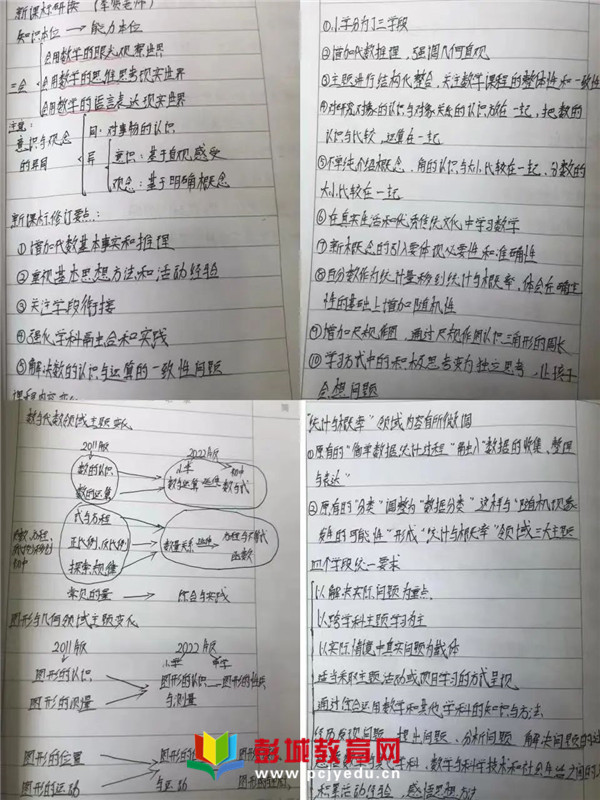 新课标研读
知识本位 → 能力本位
会用数学的眼光观察世界
三会 会用数学的思维思考现实世界
会用数学的语言表达现实世界
意识与观念的异同
同：对事物的认识
异 意识：基于直观感受
观念：基于明确概念
新课标修订要点：
①增加代数基本事实和推理
②重视基本思想方法和活动经验
③关注学段衔接
④强化学科融合和实践
⑤解决数的认识与运算的一致性问题
①小学分为了三学段
②增加代数推理，强调几何直观
③主题进行结构化整合，关注数学课程的整体性和一致性
④对研究对象的认识与对象关系的认识放在一起，把数的
认识与比较，运算在一起
⑤不单纯介绍概念，角的认识与大小比较在一起，分数的
大小比较在一起
⑥在真实生活和优秀传统文化中学习数学
⑦新概念的引入要体现必要性和准确性
⑧百分数作为统计量移到统计与概率，体会在确定
性的基础上增加随机性
⑨增加尺规作图，通过尺规作图认识三角形的周长
⑩学习方式中的积极思考变为独立思考，让孩子
会想问题
数与代数领域主题变化
2011版 2022版
小学 初中
数的认识
数的运算
数与运算 数与式
式与方程
正比例、反比例
探索规律
数量关系 方程与不等式
函数
常见的量 → 综合与实践
图形与几何领域主题变化
2011版 2022版
小学 中学
图形的认识
图形的测量
图形的认识与测量
图形的性质
图形的位置
图形的运动
"统计与概率"领域内容有所微调
①原有的"简单数据统计过程"融入"数据的收集、整理
与表达"
②原有的"分类"调整为"数据分类"，这样与"随机现象
发生的可能性"形成"统计与概率"领域三大主题
四个学段统一要求
以解决实际问题为重点
以跨学科主题学习为主
以实际情境中真实问题为载体
适当采取主题活动或项目学习的方式呈现
通过综合运用数学和其他学科的知识与方法
经历发现问题、提出问题、分析问题、解决问题的过
积累活动经验，感悟思想方法
彭城教育网
www.pcjyedu.cn